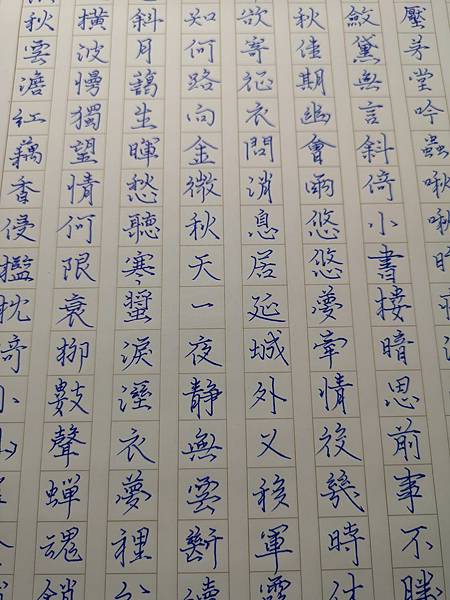 壓茅堂吟蟲啾啾時夜
斂黛無言斜倚小書樓暗思前事不勝
秋佳期幽會兩悠悠夢牽情役幾時休
欲寄征衣問消息居延城外又移軍
知何路向金微秋天一夜靜無雲斷續
斜月藹生暉愁聽寒螿淚溼衣夢裡分
橫波慢獨望情何限衰柳數聲蟬魂銷
秋雲澹紅藕香侵檻枕倚小山